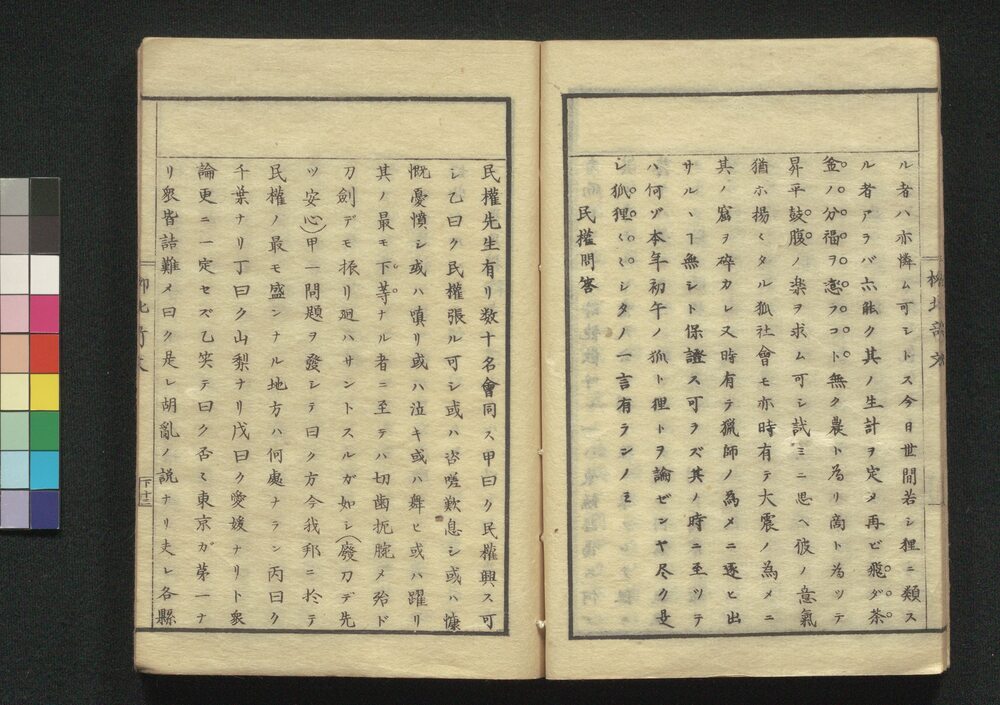 ル者ハ亦憐ム可シトス今日世間若シ狸ニ類ス
ル者アラバ六能ク其ノ生計ヲ定メ再ビ飛ダ茶
釜ノ分福ヲ戀フコト無ク農ト為リ商ト為ツテ
昇平鼓腹ノ楽ヲ求ム可シ試ミニ思ヘ彼ノ意氣
猶ホ揚々タル狐社會モ亦時有テ大震ノ為メニ
其ノ窟ヲ碎カレ又時有テ猟師ノ為メニ逐ヒ出
サルヽヿ無シト保證ス可ラズ其ノ時ニ至ツテ
ハ何ゾ本年初午ノ狐ト狸トヲ論ゼンヤ尽ク是
レ狐狸々々シタノ一言有ランノミ
民權問答
民權先生有リ数十名會同ス甲曰ク民權興ス可
シ乙曰ク民權張ル可シ或ハ咨嗟歎息シ或ハ慷
慨憂憤シ或ハ嗔リ或ハ泣キ或ハ舞ヒ或ハ躍リ
其ノ最モ下等ナル者ニ至テハ切歯扼腕メ殆ド
刀劍デモ振リ廻ハサントスルガ如シ(廢刀デ先
ツ安心)甲一問題ヲ發シテ曰ク方今我邦ニ於テ
民權ノ最モ盛ンナル地方ハ何處ナラン丙曰ク
千葉ナリ丁曰ク山梨ナリ戊曰ク愛媛ナリト衆
論更ニ一定セズ乙笑テ曰ク否ミ東京ガ第一ナ
リ衆皆詰難メ曰ク是レ胡亂ノ説ナリ夫レ各縣
下十三